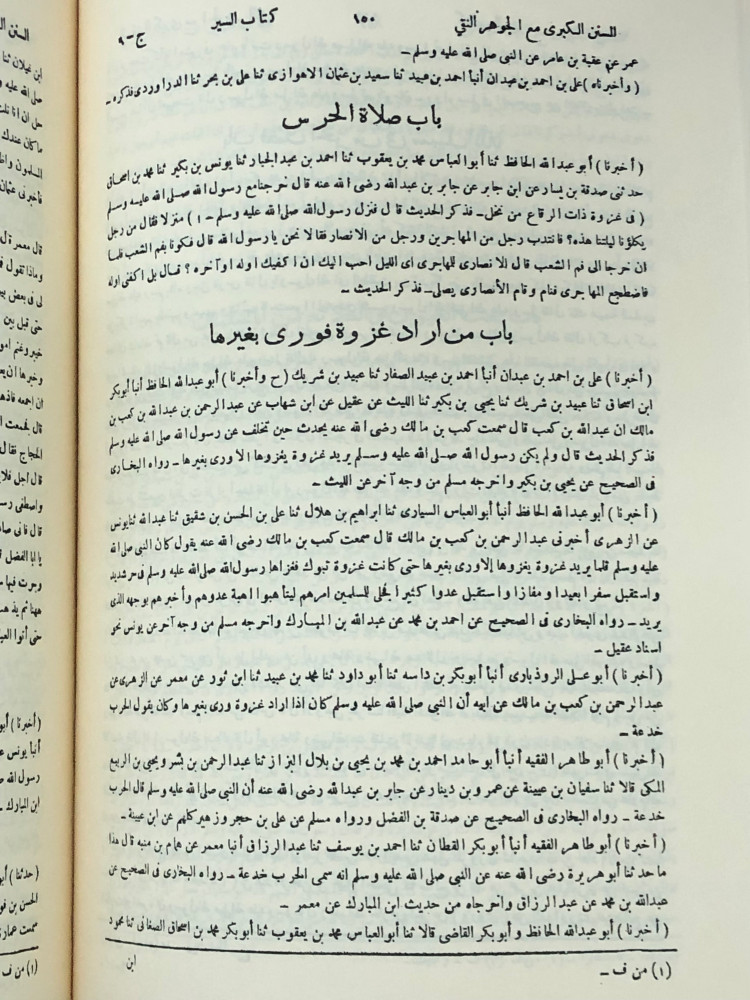 السنن الكبرى مع الجوهر النقي ١٥٠ كتاب السير ج-٩
عمر عن عقبة بن عامر عن النبى صلى الله عليه وسلم ــ
( وأخبرناه ) على بن احمد بن عبدان أنبأ احمد بن عبيد ثنا سعيد بن عثمان الاهوازى ثنا على بن بحر ثنا الدراوردى فذكره ــ
باب صلاة الحرس
( أخبرنا ) أبو عبدالله الحافظ ثنا أبو العباس محمد بن يعقوب ثنا احمد بن عبد الجبار ثنا يونس بن بكير ثنا محمد بن اسحاق
حدثنى صدقة بن يسار عن ابن جابر عن جابر بن عبدالله رضى الله عنه قال خرجنا مع رسول الله صلى الله عليه وسلم
( فى غزوة ذات الرقاع من نخل ــ فذكر الحديث قال فنزل رسول الله صلى الله عليه وسلم ــ ١ ) منزلا فقال من رجل
يكلؤنا ليلتنا هذه؟ فانتدب رجل من المهاجرين ورجل من الانصار فقالا نحن يا رسول الله قال فكونا بفم الشعب فلما
ان خرجا الى فم الشعب قال الانصارى للمهاجرى اى الليل احب اليك ان اكفيك اوله او آخره ؟ قال بل اكفنى اوله
فاضطجع المهاجرى فنام وقام الأنصارى يصلى ــ فذكر الحديث ــ
باب من اراد غزوة فورى بغيرها
( أخبرنا ) على بن احمد بن عبدان أنبأ احمد بن عبيد الصفار ثنا عبيد بن شريك ( ح وأخبرنا ) أبو عبدالله الحافظ أنبأ أبوبكر
ابن اسحاق ثنا عبيد بن شريك ثنا يحيى بن بكير ثنا الليث عن عقيل عن ابن شهاب عن عبدالرحمن بن عبدالله بن كعب بن
مالك ان عبدالله بن كعب قال سمعت كعب بن مالك رضى الله عنه يحدث حين تخلف عن رسول الله صلى الله عليه وسلم
فذكر الحديث قال ولم يكن رسول الله صلى الله عليه وسلم يريد غزوة يغزوها الا ورى بغيرها ــ رواه البخارى
فى الصحيح عن يحيى بن بكير واخرجه مسلم من وجه آخر عن الليث ــ
( أخبرنا ) أبو عبدالله الحافظ أنبأ أبوالعباس السيارى ثنا ابراهيم بن هلال ثنا على بن الحسن بن شقيق ثنا عبدالله ثنا يونس
عن الزهرى أخبرنى عبدالرحمن بن كعب بن مالك قال سمعت كعب بن مالك رضى الله عنه يقول كان النبى صلى الله
عليه وسلم قلما يريد غزوة يغزوها إلا ورى بغيرها حتى كانت غزوة تبوك فغزاها رسول الله صلى الله عليه وسلم فى حر شديد
واستقبل سفرا بعيدا ومفازا واستقبل عدوا كثيرا فجلى للمسلمين امرهم ليتأهبوا اهبة عدوهم وأخبرهم بوجهه الذى
يريد ــ رواه البخارى فى الصحيح عن احمد بن محمد عن عبدالله بن المبارك واخرجه مسلم من وجه آخر عن يونس نحو
اسناد عقيل ــ
( أخبرنا ) أبو على الروذبارى أنبأ أبوبكر بن داسه ثنا أبو داود ثنا محمد بن عبيد ثنا ابن ثور عن معمر عن الزهرى عن
عبدالرحمن بن كعب بن مالك عن ابيه أن النبى صلى الله عليه وسلم كان اذا اراد غزوة ورى بغيرها وكان يقول الحرب
خدعة ــ
( أخبرنا ) أبو طاهر الفقيه أنبأ أبو حامد احمد بن محمد بن يحيى بن بلال البزاز ثنا عبدالرحمن بن بشر ويحيى بن الربيع
المكى قالا ثنا سفيان بن عيينة عن عمرو بن دينار عن جابر بن عبدالله رضى الله عنه أن النبى صلى الله عليه وسلم قال الحرب
خدعة ــ رواه البخارى فى الصحيح عن صدقة بن الفضل ورواه مسلم عن على بن حجر وزهير كلهم عن ابن عيينة ــ
( أخبرنا ) أبو طاهر الفقيه أنبأ أبوبكر القطان ثنا احمد بن يوسف ثنا عبدالرزاق أنبأ معمر عن همام بن منبه قال هذا
ما حدثنا أبو هريرة رضى الله عنه عن النبى صلى الله عليه وسلم انه سمى الحرب خدعة ــ رواه البخارى فى الصحيح عن
عبدالله بن محمد عن عبدالرزاق واخرجاه من حديث ابن المبارك عن معمر ــ
( أخبرنا ) أبو عبدالله الحافظ وأبوبكر القاضى قالا ثنا أبوالعباس محمد بن يعقوب ثنا أبوبكر محمد بن اسحاق الصغانى ثنا محمود
ابن
(١) من ف ــ